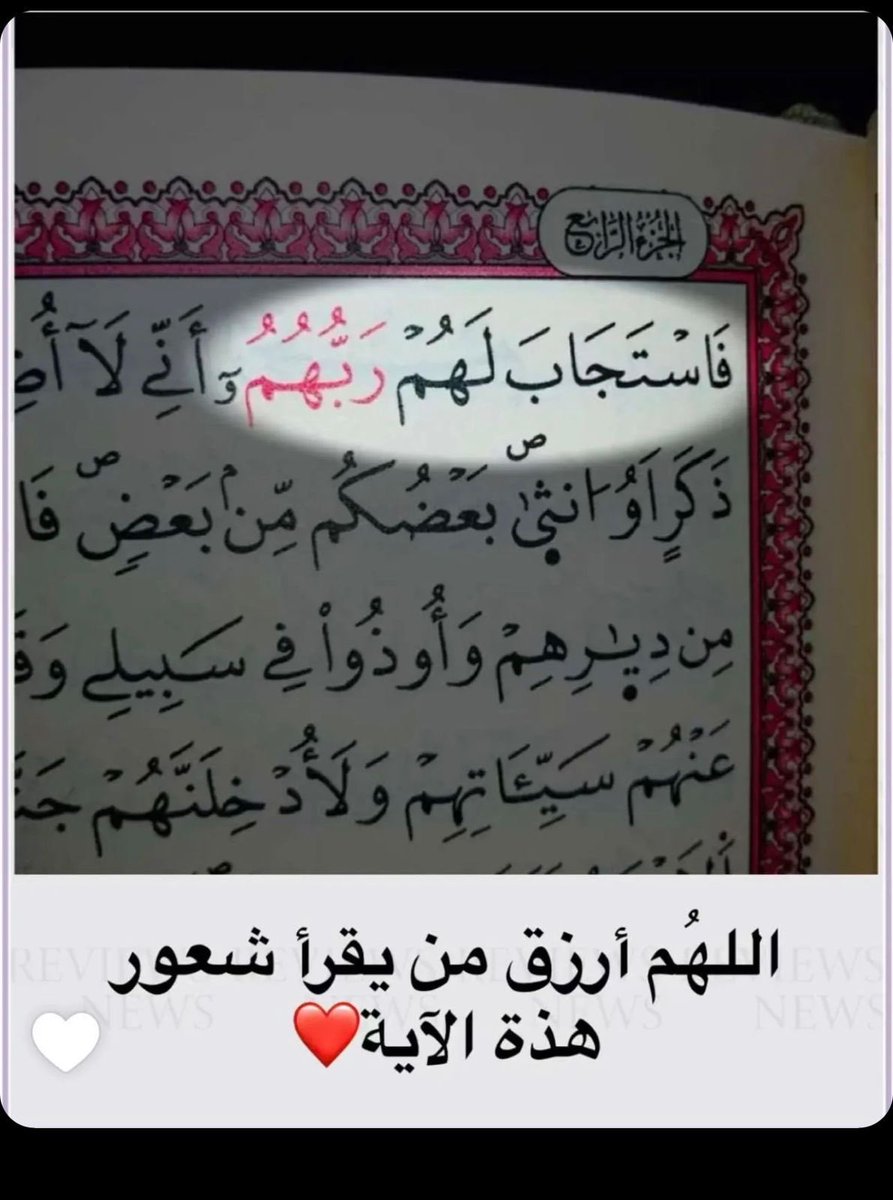 الجُزْءُ الرَّابِعُ
فَاسْتَجَابَ لَهُمْ رَبُّهُمُۥٓ أَنِّي لَآ أُضِ
ذَكَرٍ اَوُ انثىٰ بَعْضُكُم مِّنۢ بَعْضٍ فَا
مِن دِيٰرِهِمْ وَأُوذُواْ فِي سَبِيلِي وَقَ
عَنْهُمْ سَيِّـَٔاتِهِمْ وَلَأُدْخِلَنَّهُمْ جَنَّ
اللهُم أرزق من يقرأ شعور
هذة الآية❤️
REVIEWS NEWS